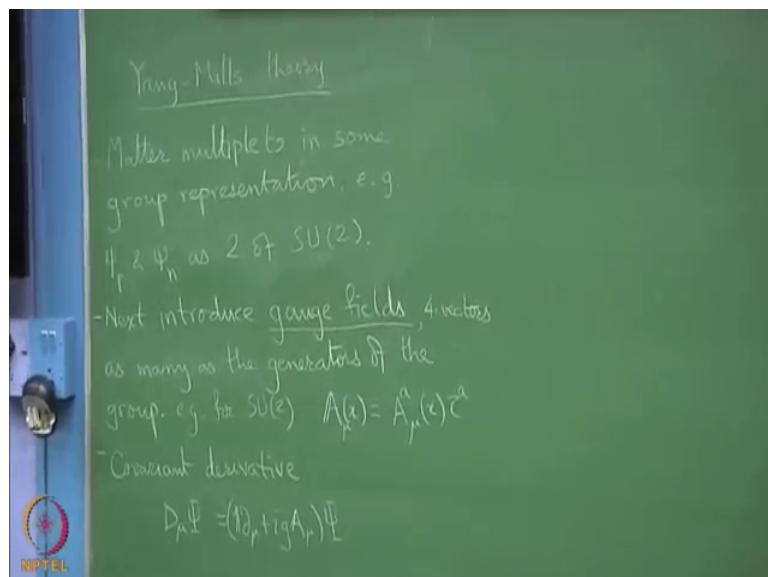 Yang-Mills theory
Matter multiplets in some
group representation. e.g.
ψ_p & ψ_n as 2 of SU(2).
- Next introduce gauge fields, 4-vectors
as many as the generators of the
group. eg. for SU(2) 𝔸_μ(x) = A^a_μ(x) τ^a
- Covariant derivative
D_μ Ψ = (𝟙∂_μ + ig𝔸_μ)Ψ
NPTEL